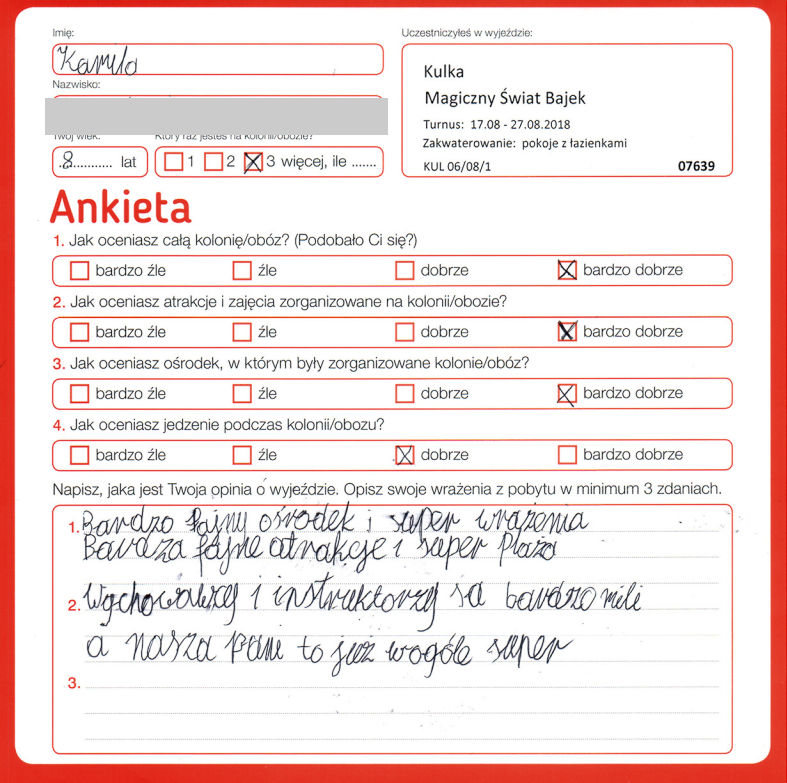 Imię:
Kamila
Nazwisko:
Twój wiek:
Który raz jesteś na kolonii/obozie?
8 lat
1 2 3 więcej, ile .......
Uczestniczyłeś w wyjeździe:
Kulka
Magiczny Świat Bajek
Turnus: 17.08 - 27.08.2018
Zakwaterowanie: pokoje z łazienkami
KUL 06/08/1 07639
Ankieta
1. Jak oceniasz całą kolonię/obóz? (Podobało Ci się?)
bardzo źle źle dobrze bardzo dobrze
2. Jak oceniasz atrakcje i zajęcia zorganizowane na kolonii/obozie?
bardzo źle źle dobrze bardzo dobrze
3. Jak oceniasz ośrodek, w którym były zorganizowane kolonie/obóz?
bardzo źle źle dobrze bardzo dobrze
4. Jak oceniasz jedzenie podczas kolonii/obozu?
bardzo źle źle dobrze bardzo dobrze
Napisz, jaka jest Twoja opinia o wyjeździe. Opisz swoje wrażenia z pobytu w minimum 3 zdaniach.
1. Bardzo fajny ośrodek i super wrażenia
Bardza fajne atrakcje i super Plaża
2. Wychowawcy i instruktorzy sa bardzo mili
a nasza pani to już wogóle super
3.